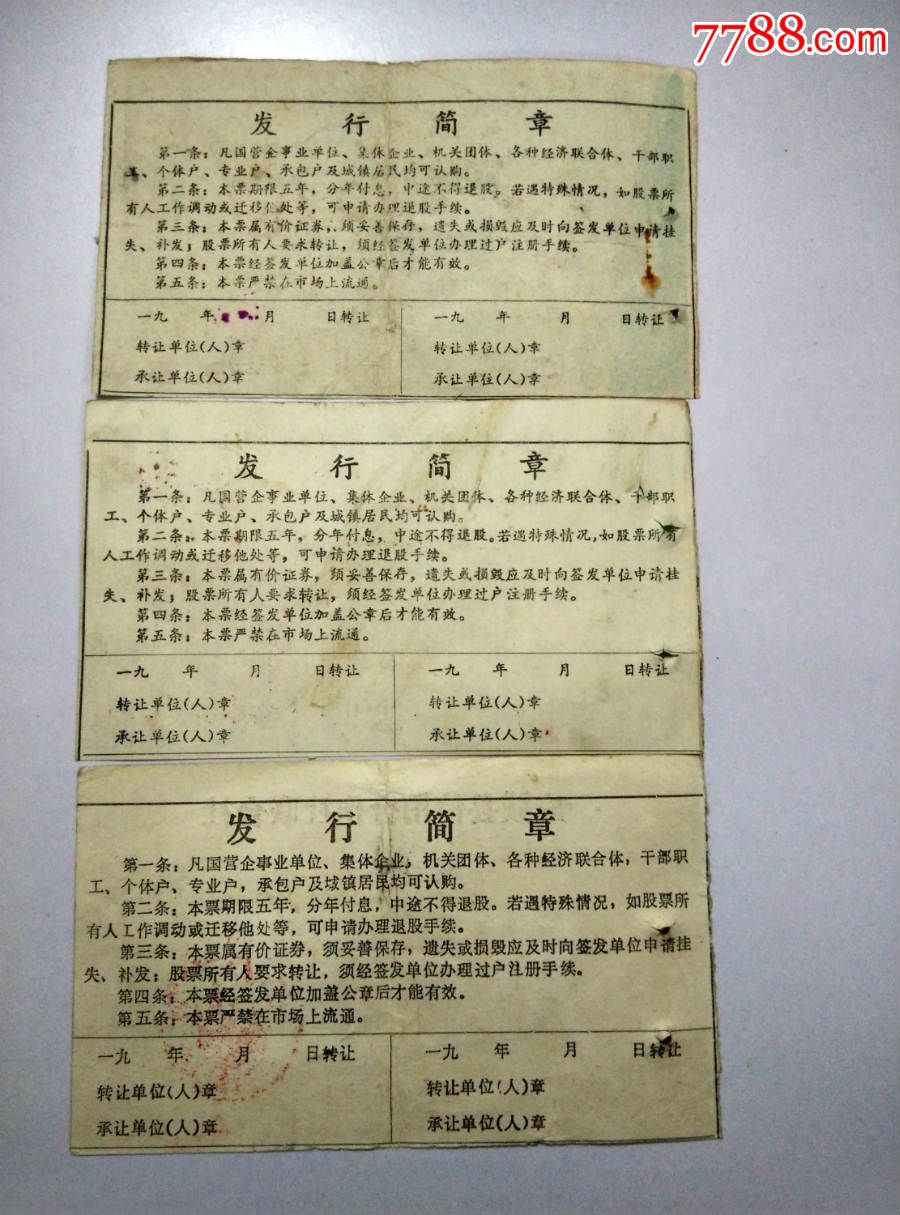 7788.com
发行简章
第一条：凡国营企事业单位、集体企业、机关团体、各种经济联合体、干部职
工、个体户、专业户、承包户及城镇居民均可认购。
第二条：本票期限五年，分年付息，中途不得退股。若遇特殊情况，如股票所
有人工作调动或迁移他处等，可申请办理退股手续。
第三条：本票属有价证券，须妥善保存，遗失或损毁应及时向签发单位申请挂
失、补发；股票所有人要求转让，须经签发单位办理过户注册手续。
第四条：本票经签发单位加盖公章后才能有效。
第五条：本票严禁在市场上流通。
一九 年 月 日转让 一九 年 月 日转让
转让单位(人)章 转让单位(人)章
承让单位(人)章 承让单位(人)章
发行简章
第一条：凡国营企事业单位、集体企业、机关团体、各种经济联合体、干部职
工、个体户、专业户、承包户及城镇居民均可认购。
第二条：本票期限五年，分年付息，中途不得退股。若遇特殊情况，如股票所有
人工作调动或迁移他处等，可申请办理退股手续。
第三条：本票属有价证券，须妥善保存，遗失或损毁应及时向签发单位申请挂
失、补发；股票所有人要求转让，须经签发单位办理过户注册手续。
第四条：本票经签发单位加盖公章后才能有效。
第五条：本票严禁在市场上流通。
一九 年 月 日转让 一九 年 月 日转让
转让单位(人)章 转让单位(人)章
承让单位(人)章 承让单位(人)章
发行简章
第一条：凡国营企事业单位、集体企业，机关团体、各种经济联合体，干部职
工、个体户、专业户，承包户及城镇居民均可认购。
第二条：本票期限五年，分年付息，中途不得退股。若遇特殊情况，如股票所
有人工作调动或迁移他处等，可申请办理退股手续。
第三条：本票属有价证券，须妥善保存，遗失或损毁应及时向签发单位申请挂
失、补发；股票所有人要求转让，须经签发单位办理过户注册手续。
第四条：本票经签发单位加盖公章后才能有效。
第五条：本票严禁在市场上流通。
一九 年 月 日转让 一九 年 月 日转让
转让单位(人)章 转让单位(人)章
承让单位(人)章 承让单位(人)章